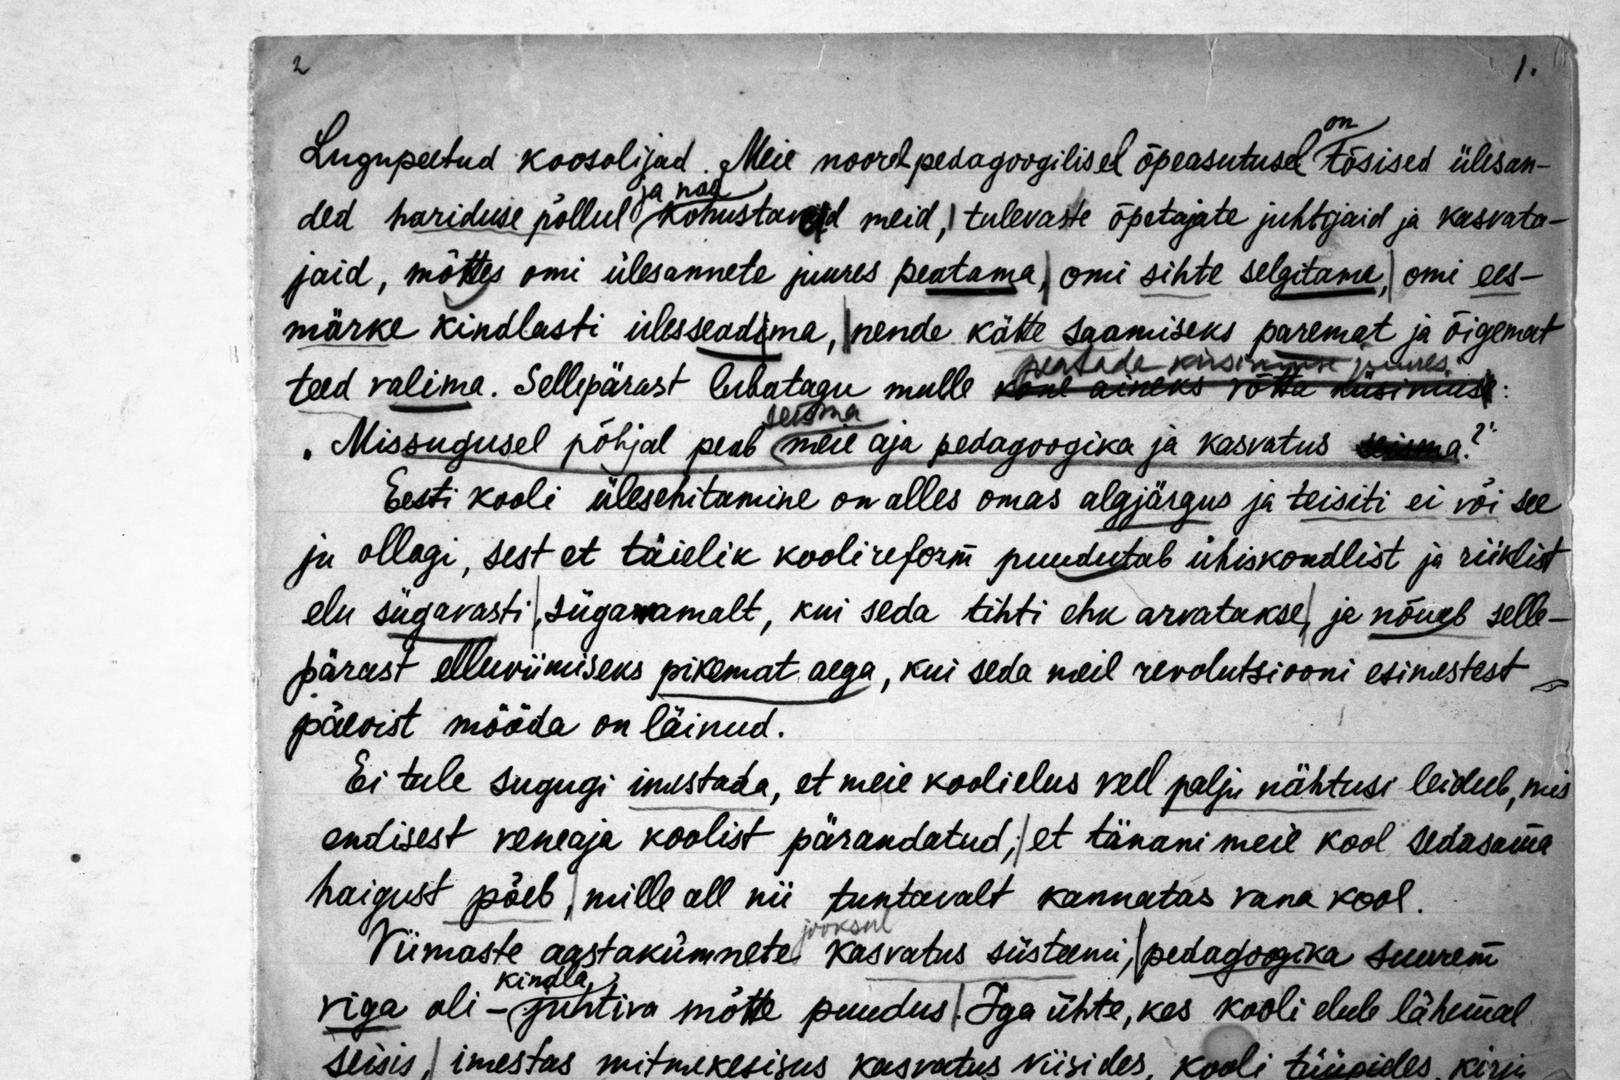 2 1.
on
Lugupeetud koosolijad. Meie noorel pedagoogilisel õpeasutusel tõsised ülesan-
ja nad
ded hariduse põllul kohustavad meid, tulevaste õpetajate juhtijaid ja kasvata-
jaid, mõttes omi ülesannete juures peatama, omi sihte selgitama, omi ees-
märke kindlasti ülesseadima, nende kätte saamiseks paremat ja õigemat
peatada küsimuse juures
teed valima. Sellepärast lubatagu mulle kõne aineks võtta küsimuse:
seisma
"Missugusel põhjal peab meie aja pedagoogika ja kasvatus seisma?"
Eesti kooli ülesehitamine on alles omas algjärgus ja teisiti ei või see
ju ollagi, sest et täielik koolireform̄ puudutab ühiskondlist ja riiklist
elu sügavasti, sügavamalt, kui seda tihti ehk arvatakse, ja nõuab selle-
pärast elluviimiseks pikemat aega, kui seda meil revolutsiooni esimestest
päevist mööda on läinud.
Ei tule sugugi imestada, et meie koolielus veel palju nähtusi leidub, mis
endisest veneaja koolist pärandatud, et tänani meie kool sedasama
haigust põeb, mille all nii tuntavalt kannatas vana kool.
jooksul
Viimaste aastakümnete kasvatus süsteemi, pedagoogika suurem̄
kindla
viga oli – juhtiva mõtte puudus. Iga ühte, kes kooli elule lähem̄al
seisis, imestas mitmekesisus kasvatus viisides, kooli tüüpides,